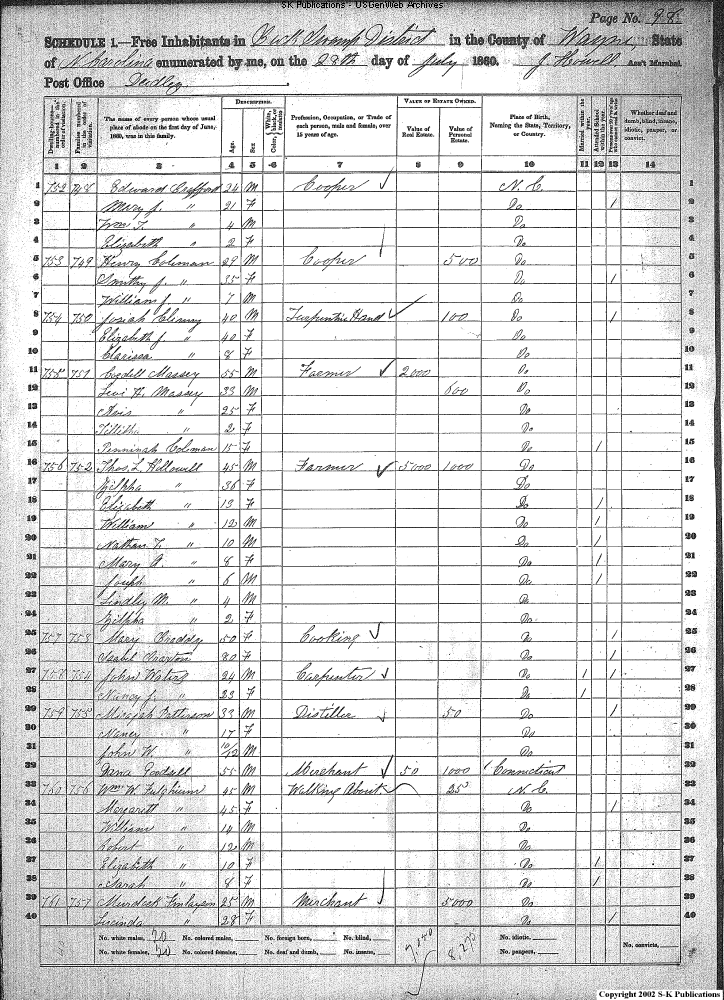 SK Publications - USGenWeb Archives
Page No. 98
SCHEDULE 1.—Free Inhabitants in Buck Swamp District in the County of Wayne State
of N. Carolina enumerated by me, on the 28th day of July 1860. J. Howell Ass't Marshal.
Post Office
Dwelling-houses—numbered in the order of visitation.
Families numbered in the order of visitation.
The name of every person whose usual place of abode on the first day of June, 1860, was in this family.
DESCRIPTION.
Age.
Sex.
Color, {White, black, or mulatto.
Profession, Occupation, or Trade of each person, male and female, over 15 years of age.
VALUE OF ESTATE OWNED.
Value of Real Estate.
Value of Personal Estate.
Place of Birth, Naming the State, Territory, or Country.
Married within the year.
Attended School within the year.
Whether deaf and dumb, blind, insane, idiotic, pauper, or convict.
1 2 3 4 5 6 7 8 9 10 11 12 13 14
1 752 748 Edward 24 M Cooper N. C. 1
2 Mary J. " 21 F Do 1 2
3 Wm T. " 4 M Do 3
4 Elizabeth " 2 F Do 4
5 753 749 Henry Coleman 29 M Cooper 500 Do 5
6 Smithy J. " 35 F Do 1 6
7 William J. " 7 M Do 7
8 754 750 Josiah 40 M Turpentine Hand 100 Do 1 8
9 Elizabeth J. " 40 F Do 9
10 Clarissa " 8 F Do 10
11 755 751 Cordell Massey 55 M Farmer 2000 Do 11
12 Levi H. Massey 33 M 600 Do 12
13 Avis " 25 F Do 13
14 Tillitha " 2 F Do 14
15 Penninah Coleman 15 F Do 1 15
16 756 752 Thos. L. Hollowell 45 M Farmer 5000 1000 Do 16
17 Zilpha " 36 F Do 17
18 Elizabeth " 13 F Do 1 18
19 William " 12 M Do 1 19
20 Nathan T. " 10 M Do 1 20
21 Mary A. " 8 F Do 1 21
22 Joseph " 6 M Do 1 22
23 Lindley M. " 4 M Do 23
24 Zilpha " 2 F Do 24
25 757 753 Mary 50 F Cooking Do 1 25
26 Isabel 80 F Do 1 26
27 758 754 John Waters 24 M Carpenter Do 1 1 27
28 Nancy J. " 23 F Do 1 28
29 759 755 Micajah Patterson 33 M Distiller 50 Do 1 29
30 Nancy " 17 F Do 30
31 John W. " 10/12 M Do 31
32 Goodsell 55 M Merchant 50 1000 Connecticut 32
33 760 756 Wm W. Fulghium 45 M Walking About 25 N. C. 33
34 Margarett " 45 F Do 1 34
35 William " 14 M Do 35
36 Robert " 12 M Do 36
37 Elizabeth " 10 F Do 1 37
38 Sarah " 8 F Do 1 38
39 761 757 Murdock Finlayson 25 M Merchant 5000 Do 39
40 Lucinda " 28 F Do 1 40
No. white males, 20 No. colored males, No. foreign born, No. blind, No. idiotic, No. convicts,
No. white females, 20 No. colored females, No. deaf and dumb, No. insane, 8,275 No. paupers,
Copyright 2002 S-K Publications